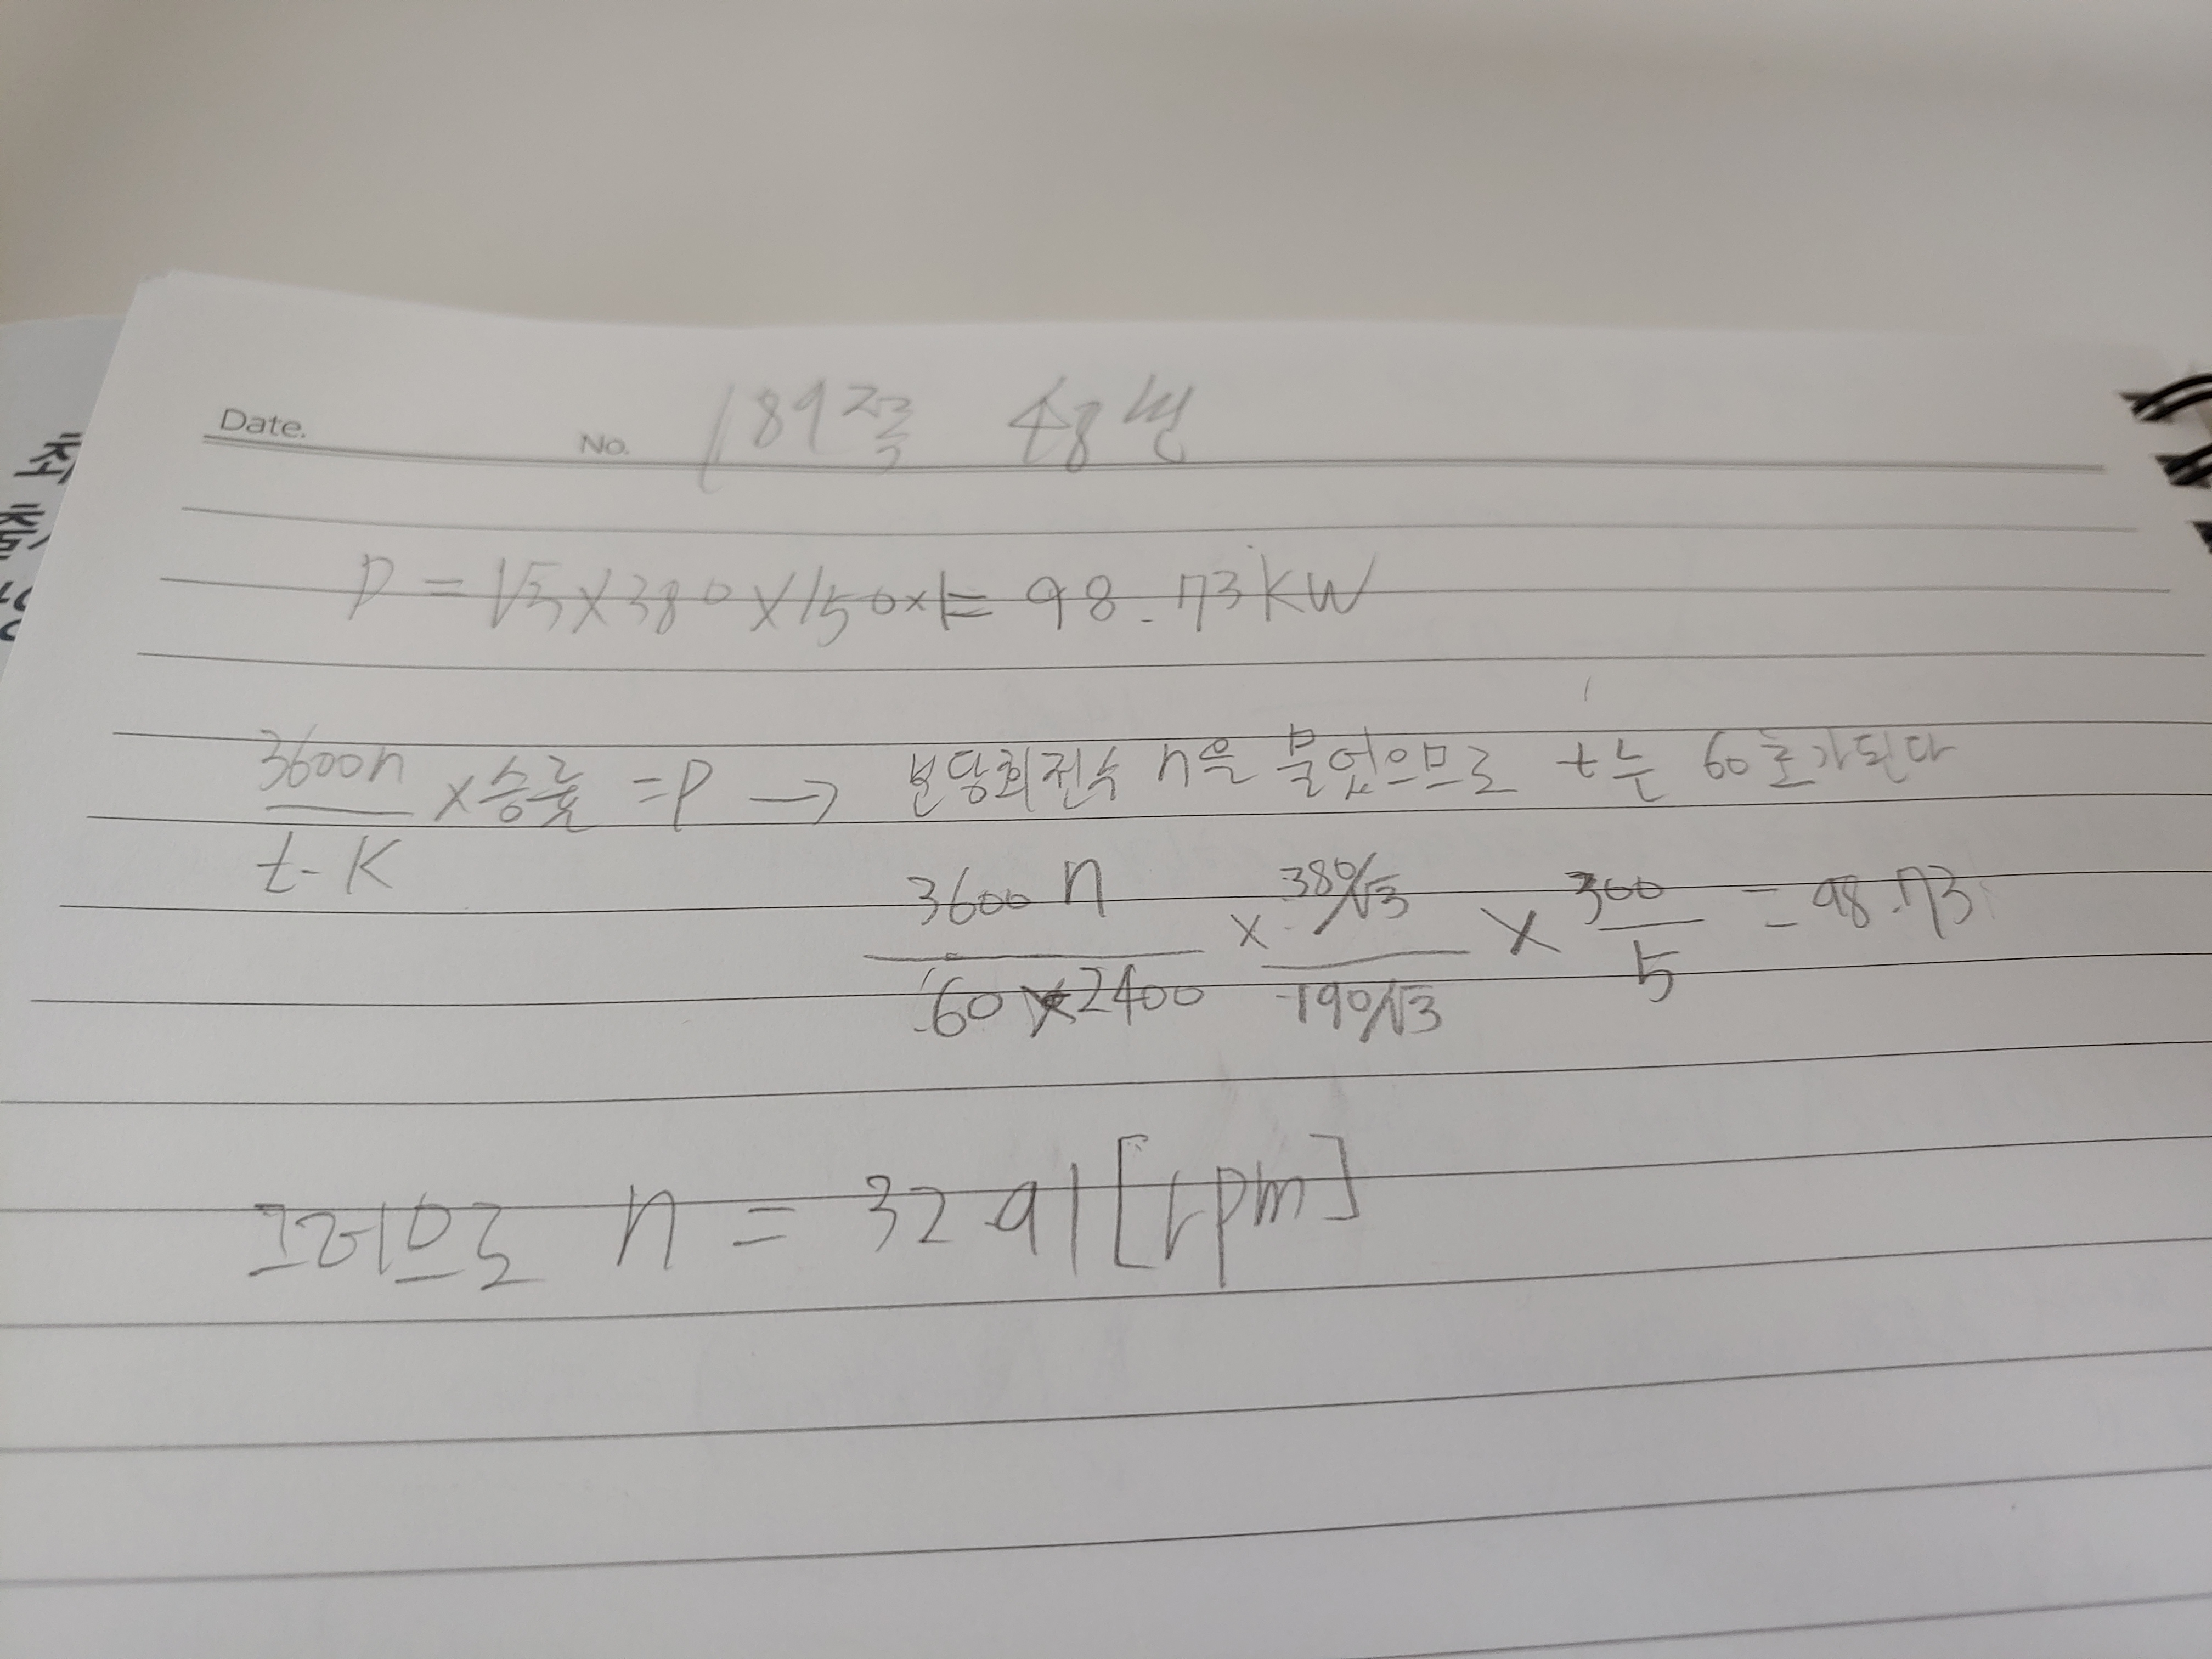 Date.
No. 189쪽 48번
P = √3 × 380 × 150 × 1 = 98.73kW
3600n/t·K × 승률 = P → 분당회전수 n을 물었으므로 t는 60초가된다
3600n/60×2400 × 380/√3/190/√3 × 300/5 = 98.73
그러므로 n = 32.91[rpm]
최